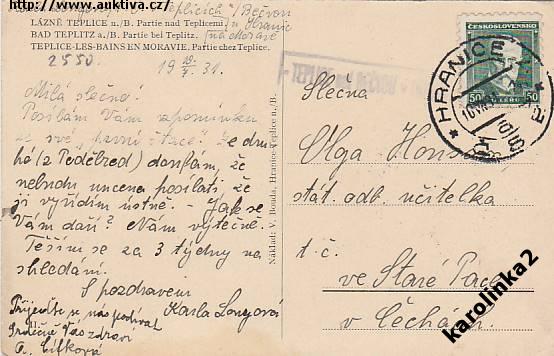 http://www.auktiva.cz/
Teplicích n./Bečvou
LÁZNĚ TEPLICE n./B. Partie nad Teplicemi u Hranic
BAD TEPLITZ a./B. Partie bei Teplitz. (na Moravě
TEPLICE-LES-BAINS EN MORAVIE. Partie chez Teplice.
2550.
19 19/7 31.
Milá slečno!
Posílám Vám vzpomínku
ze své „první štace". Ze dru-
hé (z Poděbrad) doufám, že
nebudu nucena posílati, že
ji vyřídím ústně. – Jak se
Vám daří? Nám výtečně.
Těším se za 3 týdny na
shledání.
S pozdravem
Karla
Přijeďte se nás podívat
Srdečně Vás zdraví
Náklad: V. Bouda, Hranice-Teplice n./B.
TEPLICE NAD BEČVOU
ČESKOSLOVENSKO
50 50
HRANICE
Slečna
Olga
stát. odb. učitelka
t. č.
ve Staré Pace
v Čechách
karolinka2